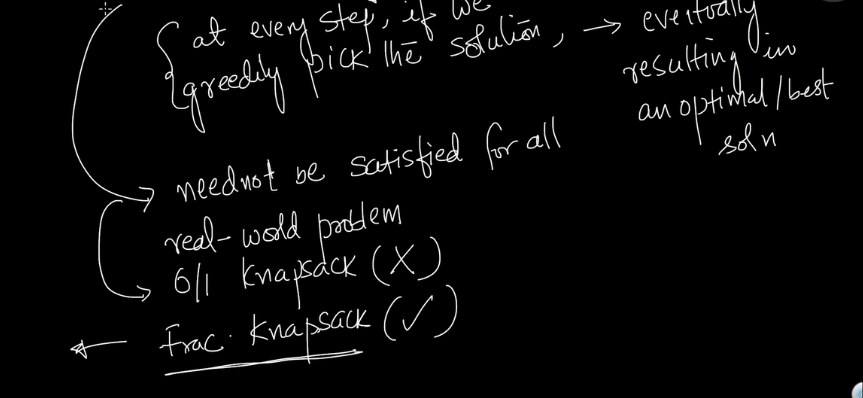 at every step, if we
greedily pick the solution, → eventually
resulting in
an optimal/best
soln
need not be satisfied for all
real-world problem
0/1 Knapsack (X)
← Frac. Knapsack (✓)